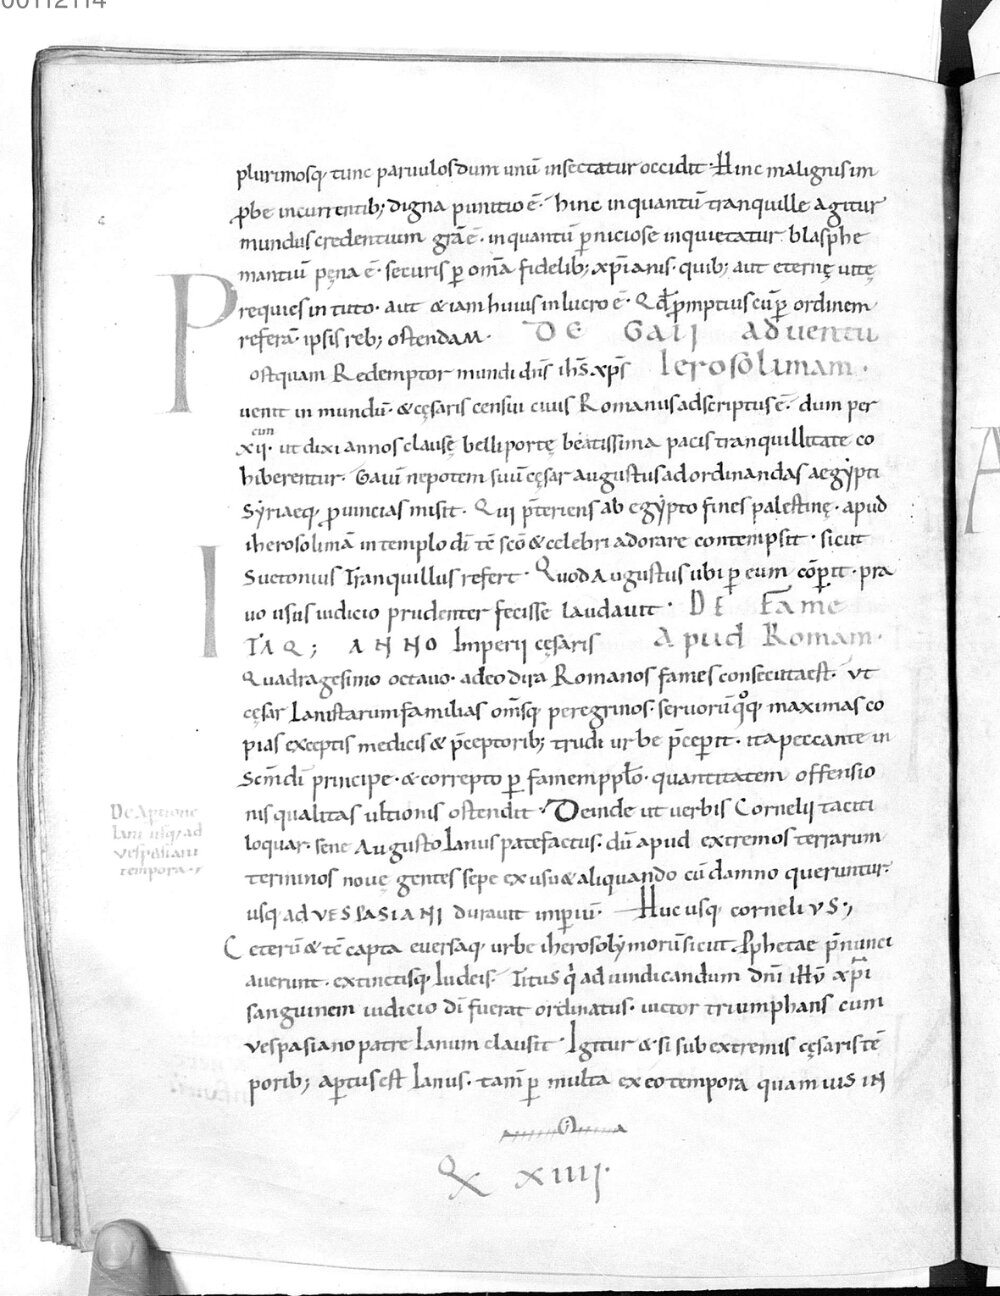 00112114
plurimosq; tunc paruulos dum unū insectatur occidit · Hinc malignis im
ꝓbe incurrentib; digna punitio ē · hinc in quantū tranquille agitur
mundus credentium gr̄a ē · in quantū ꝑniciose inquietatur blasphe
mantiū pęna ē · securis ꝑ om̄a fidelib; xp̄ianis · quib; aut eternę uitę
requies in tuto · aut & iam huius in lucro ē · Qd̄ ꝓmptius cū ꝑ ordinem
referā ipsis reb; ostendam · DE GAII aduentu
Postquam Redemptor mundi dn̄s ih̄s xp̄s Ierosolimam ·
uenit in mundū · & cęsaris censui ciuis Romanus adscriptus ē · dum per
cim
xii · ut dixi annos clausę belli portę beatissima pacis tranquillitate co
hiberentur · Gaiū nepotem suū cęsar augustus ad ordinandas aegẏpti
Sẏriaeq; ꝓuincias misit · Qui p̄teriens ab egẏpto fines palestinę · apud
iherosolimā in templo dī tē sc̄o & celebri adorare contempsit · sicut
Suetonius Tranquillus refert · Quod Augustus ubi ꝑ eum cōꝑit · pra
uo usus iudicio prudenter fecisse laudauit · DE Fame
ITAQ; ANNO Imperii cęsaris Apud Romam ·
Quadragesimo octauo · adeo dira Romanos fames consecuta est · ut
cęsar Lanistarum familias om̄sq; peregrinos · seruorū qoq; maximas co
pias exceptis medicis & p̄ceptorib; trudi urbe p̄ceꝑit · ita peccante in
Scm̄ dī principe · & correpto ꝑ famem pplo · quantitatem offensio
nis qualitas ultionis ostendit · Deinde ut uerbis Cornelii taciti
loquar · sene Augusto Ianus patefactus · dū apud extremos terrarum
terminos nouę gentes sepe ex usu & aliquando cū damno queruntur ·
usq; ad VESPASIANI durauit imꝑiū · Huc usq; cornelius ;
Ceterū & tē capta euersaq; urbe iherosolẏmorū sicut ꝓphetae p̄nunci
auerunt · extinctisq; Iudeis · Titus q̇ ad uindicandum dn̄i ih̄u xp̄i
sanguinem iudicio dī fuerat ordinatus · uictor triumphans cum
uespasiano patre Ianum clausit · Igitur & si sub extremis cęsaris tē
porib; aꝑtus est Ianus · tam̄ ꝑ multa ex eo tempora quamuis IN
De aptione
Iani usq; ad
vespasiani
tempora ·
XIIII ·